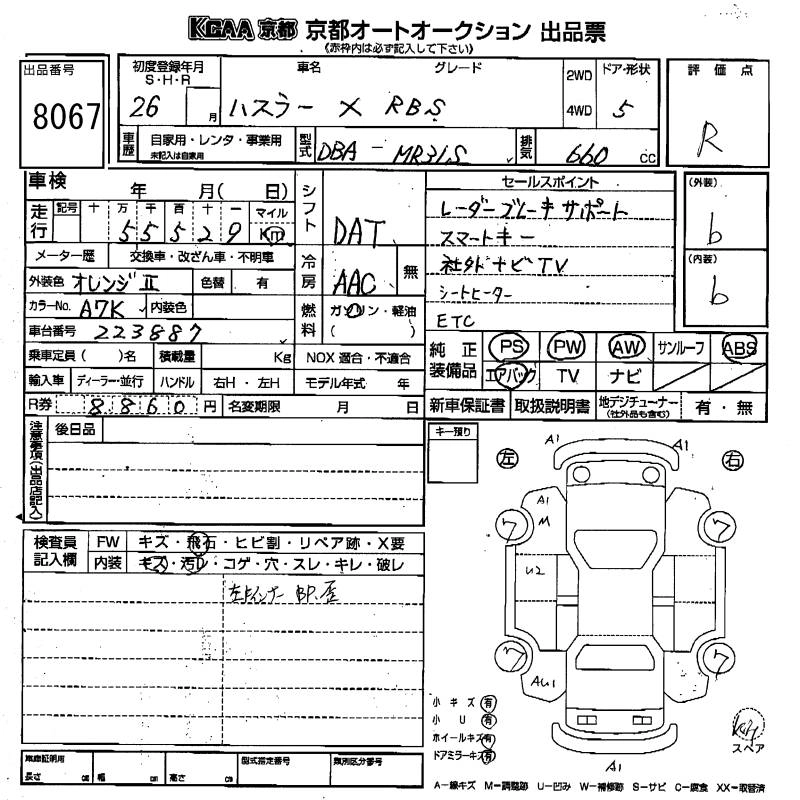 KCAA 京都 京都オートオークション 出品票
《赤枠内は必ず記入して下さい》
出品番号
8067
初度登録年月
S・H・R
26 月
車名 グレード
ハスラー X RBS
2WD
4WD
ドア・形状
5
評価点
R
車歴
自家用・レンタ・事業用
未記入は自家用
型式
DBA - MR31S
排気
660 cc
車検 年 月( 日)
走行
記号 十 万 千 百 十 一 マイル
5 5 5 2 9 Km
メーター歴 交換車・改ざん車・不明車
外装色 オレンジⅡ 色替 有
カラーNo. A7K 内装色
車台番号 223887
乗車定員( )名 積載量 Kg
輸入車 ディーラー・並行 ハンドル 右H・左H
R券 8860円 名変期限 月 日
シフト DAT
冷房 AAC 無
燃料 ガソリン・軽油
( )
NOX 適合・不適合
モデル年式 年
セールスポイント
レーダーブレーキサポート
スマートキー
社外ナビTV
シートヒーター
ETC
(外装)
b
(内装)
b
純正装備品
PS PW AW サンルーフ ABS
エアバック TV ナビ
新車保証書 取扱説明書 地デジチューナー 有・無
(社外品も含む)
注意事項(出品店記入)
後日品
キー預り
検査員記入欄
FW キズ・飛石・ヒビ割・リペア跡・X要
内装 キズ・汚レ・コゲ・穴・スレ・キレ・破レ
BP.歪
左 右
A1 A1
A1
M
ワ ワ
U2
ワ ワ
AU1
A1
小キズ 有
小U 有
ホイールキズ 有
ドアミラーキズ 有
スペア
車庫証明用
長さ cm 幅 cm 高さ cm
型式指定番号
類別区分番号
A―線キズ M―調整跡 U―凹み W―補修跡 S―サビ C―腐食 XX―取替済